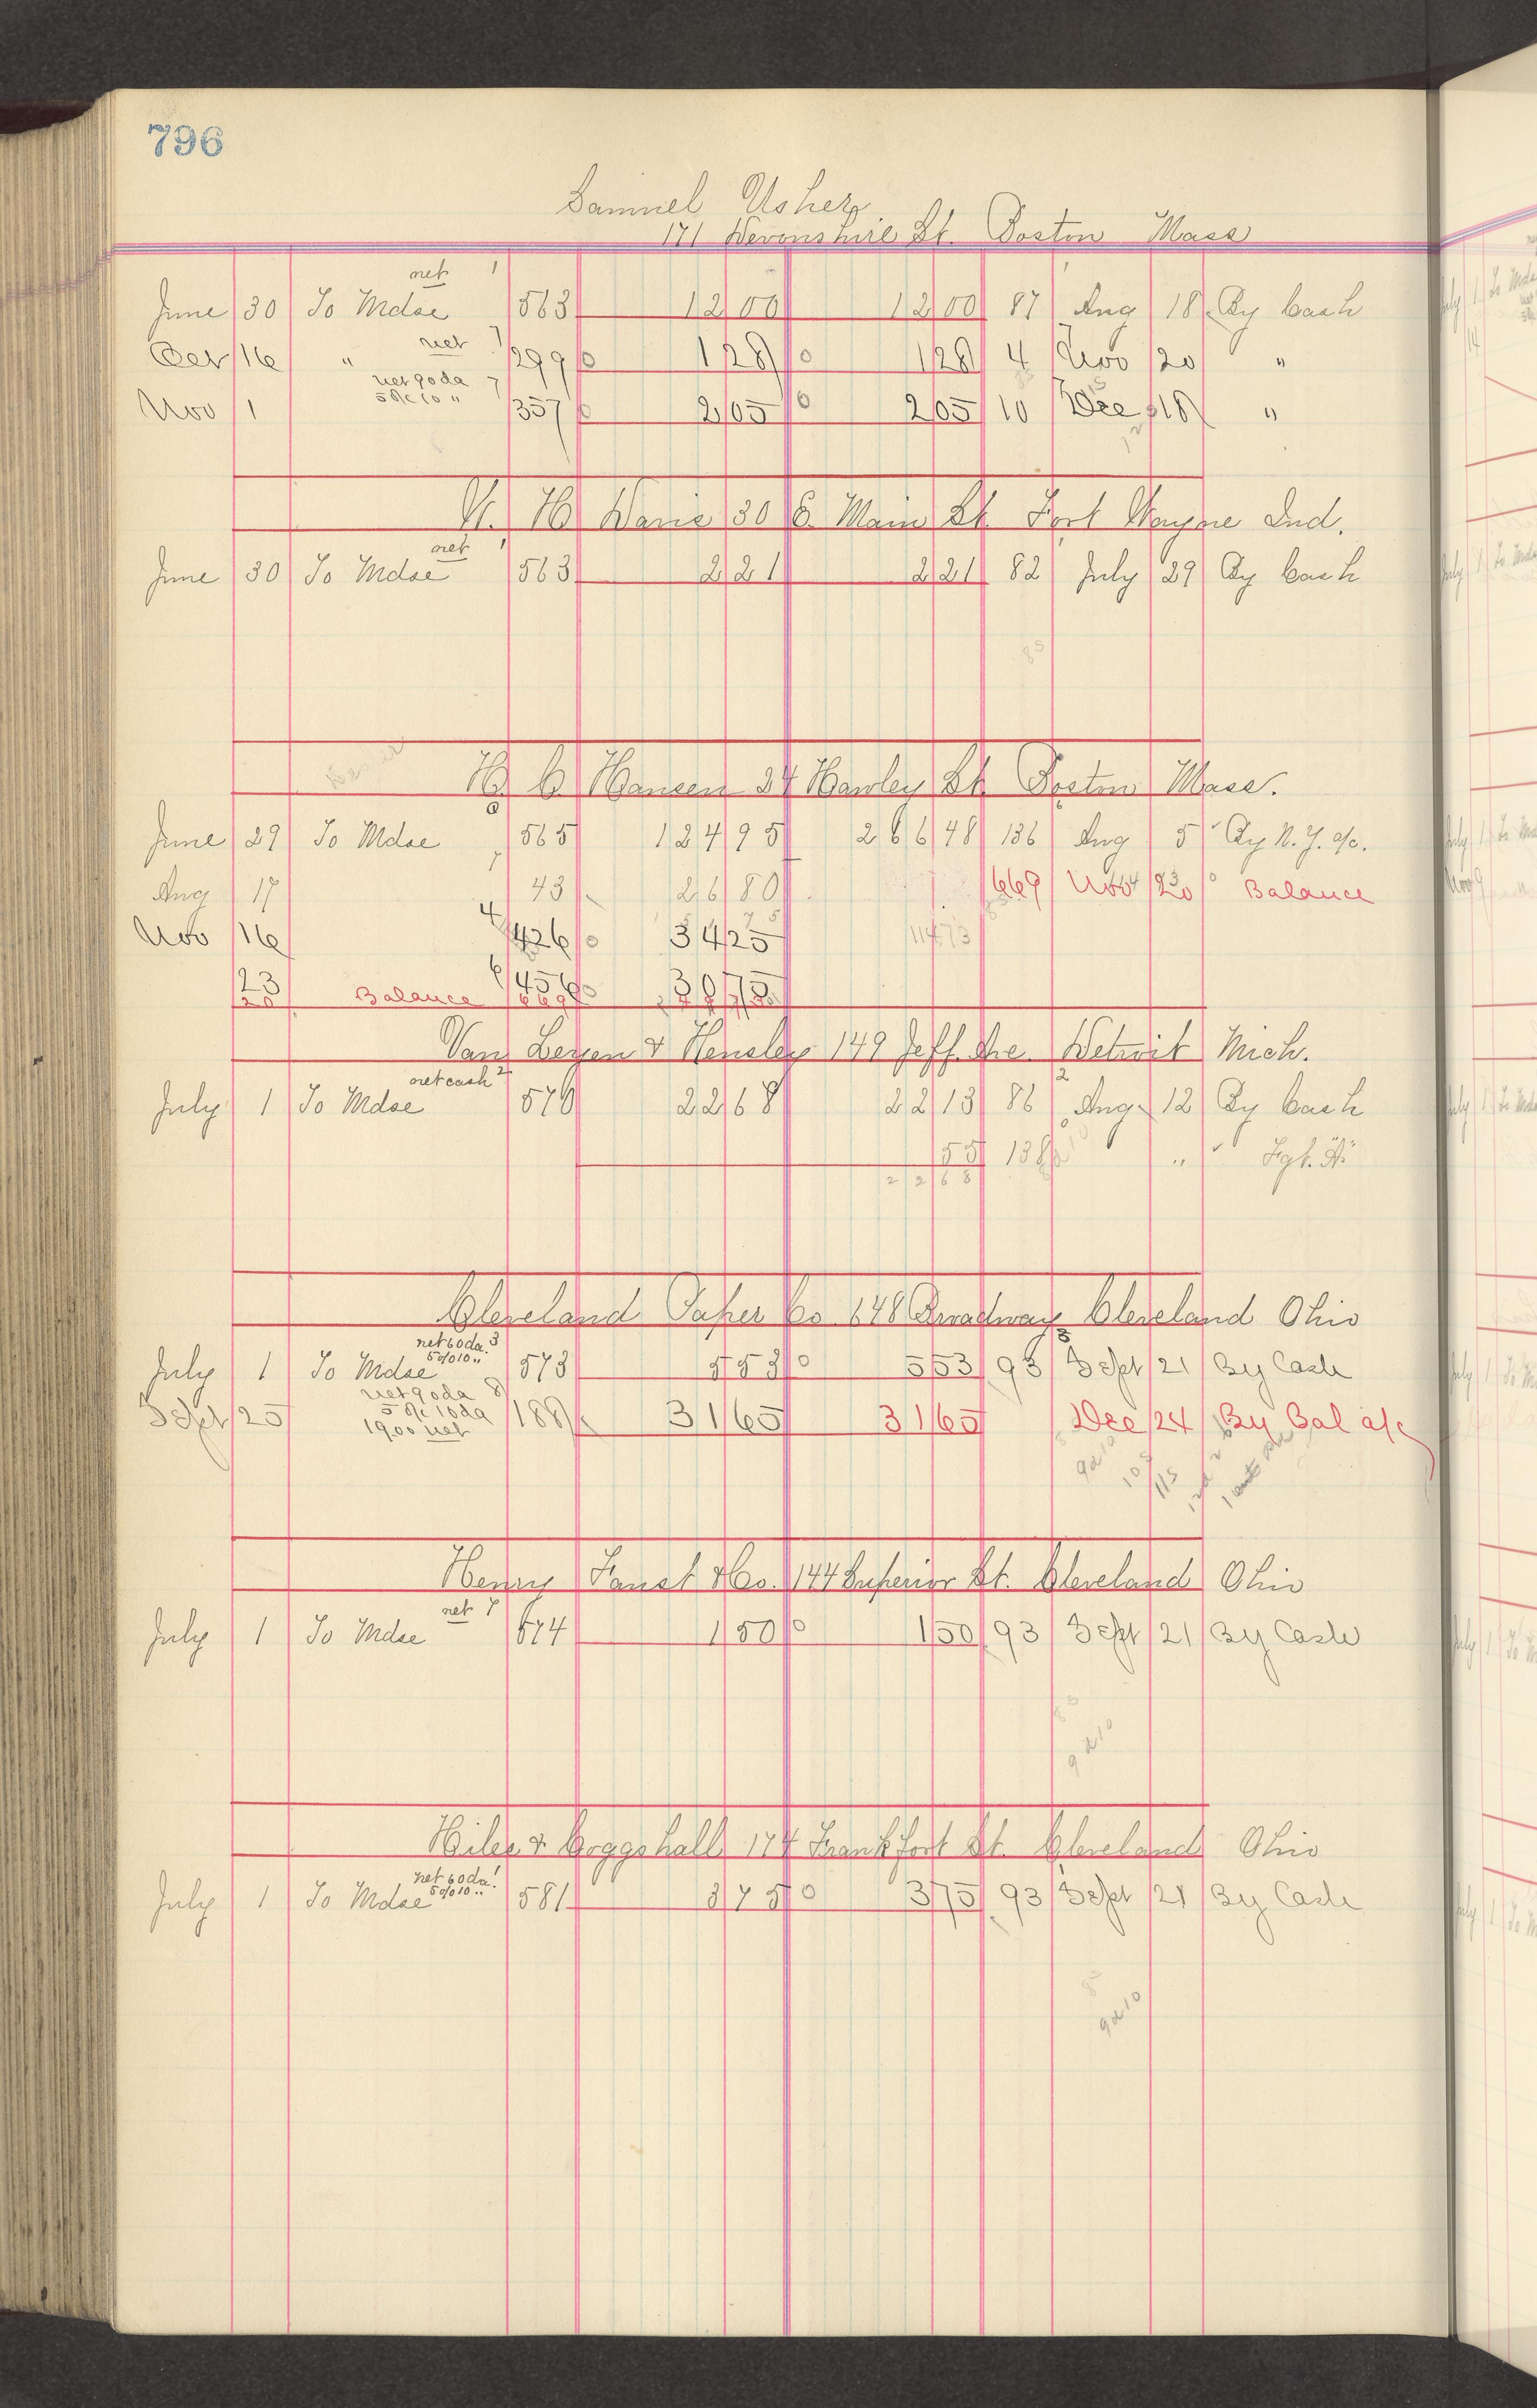 796
Samuel Usher
171 Devonshire St. Boston Mass
net 1
June 30 To Mdse 563 12 00 12 00 87 Aug 18 By Cash
net 7
Oct 16 " 299 1 28 1 28 4 Nov 20 "
net 90 da 7
5% 10 "
Nov 1 357 2 05 2 05 10 Dec 18 "
30 E. Main St. Fort Wayne Ind.
net 1
June 30 To Mdse 563 2 21 2 21 82 July 29 By Cash
85
H. C. Hansen 24 Hawley St. Boston Mass.
June 29 To Mdse 565 124 95 266 48 136 Aug 5 By N. Y. a/c.
Aug 17 43 26 80 669 Nov 20 Balance
Nov 16 426 34 25 114 73
23 456
20 Balance 669
Van Leyen & Hensler 149 Jeff. Ave. Detroit Mich.
net cash 2
July 1 To Mdse 570 22 68 22 13 86 Aug. 12 By Cash
55 138 " " Fgt.
22 68
Cleveland Paper Co Broadway Cleveland Ohio
net 60 da. 3
5% 10 "
July 1 To Mdse 573 5 53 5 53 93 Sept 21 By Cash
net 90 da 8
5% 10 da
Sept 25 188 31 65 31 65 Dec 24 By Bal a/c
19.00 net
Henry Faust & Co. 144 Superior St. Cleveland Ohio
net 7
July 1 To Mdse 574 1 50 1 50 93 Sept 21 By Cash
9d10
Hiles & Coggshall 174 Frankfort St. Cleveland Ohio
net 60 da. 1
5% 10 "
July 1 To Mdse 581 3 75 3 75 93 Sept 21 By Cash
9d10